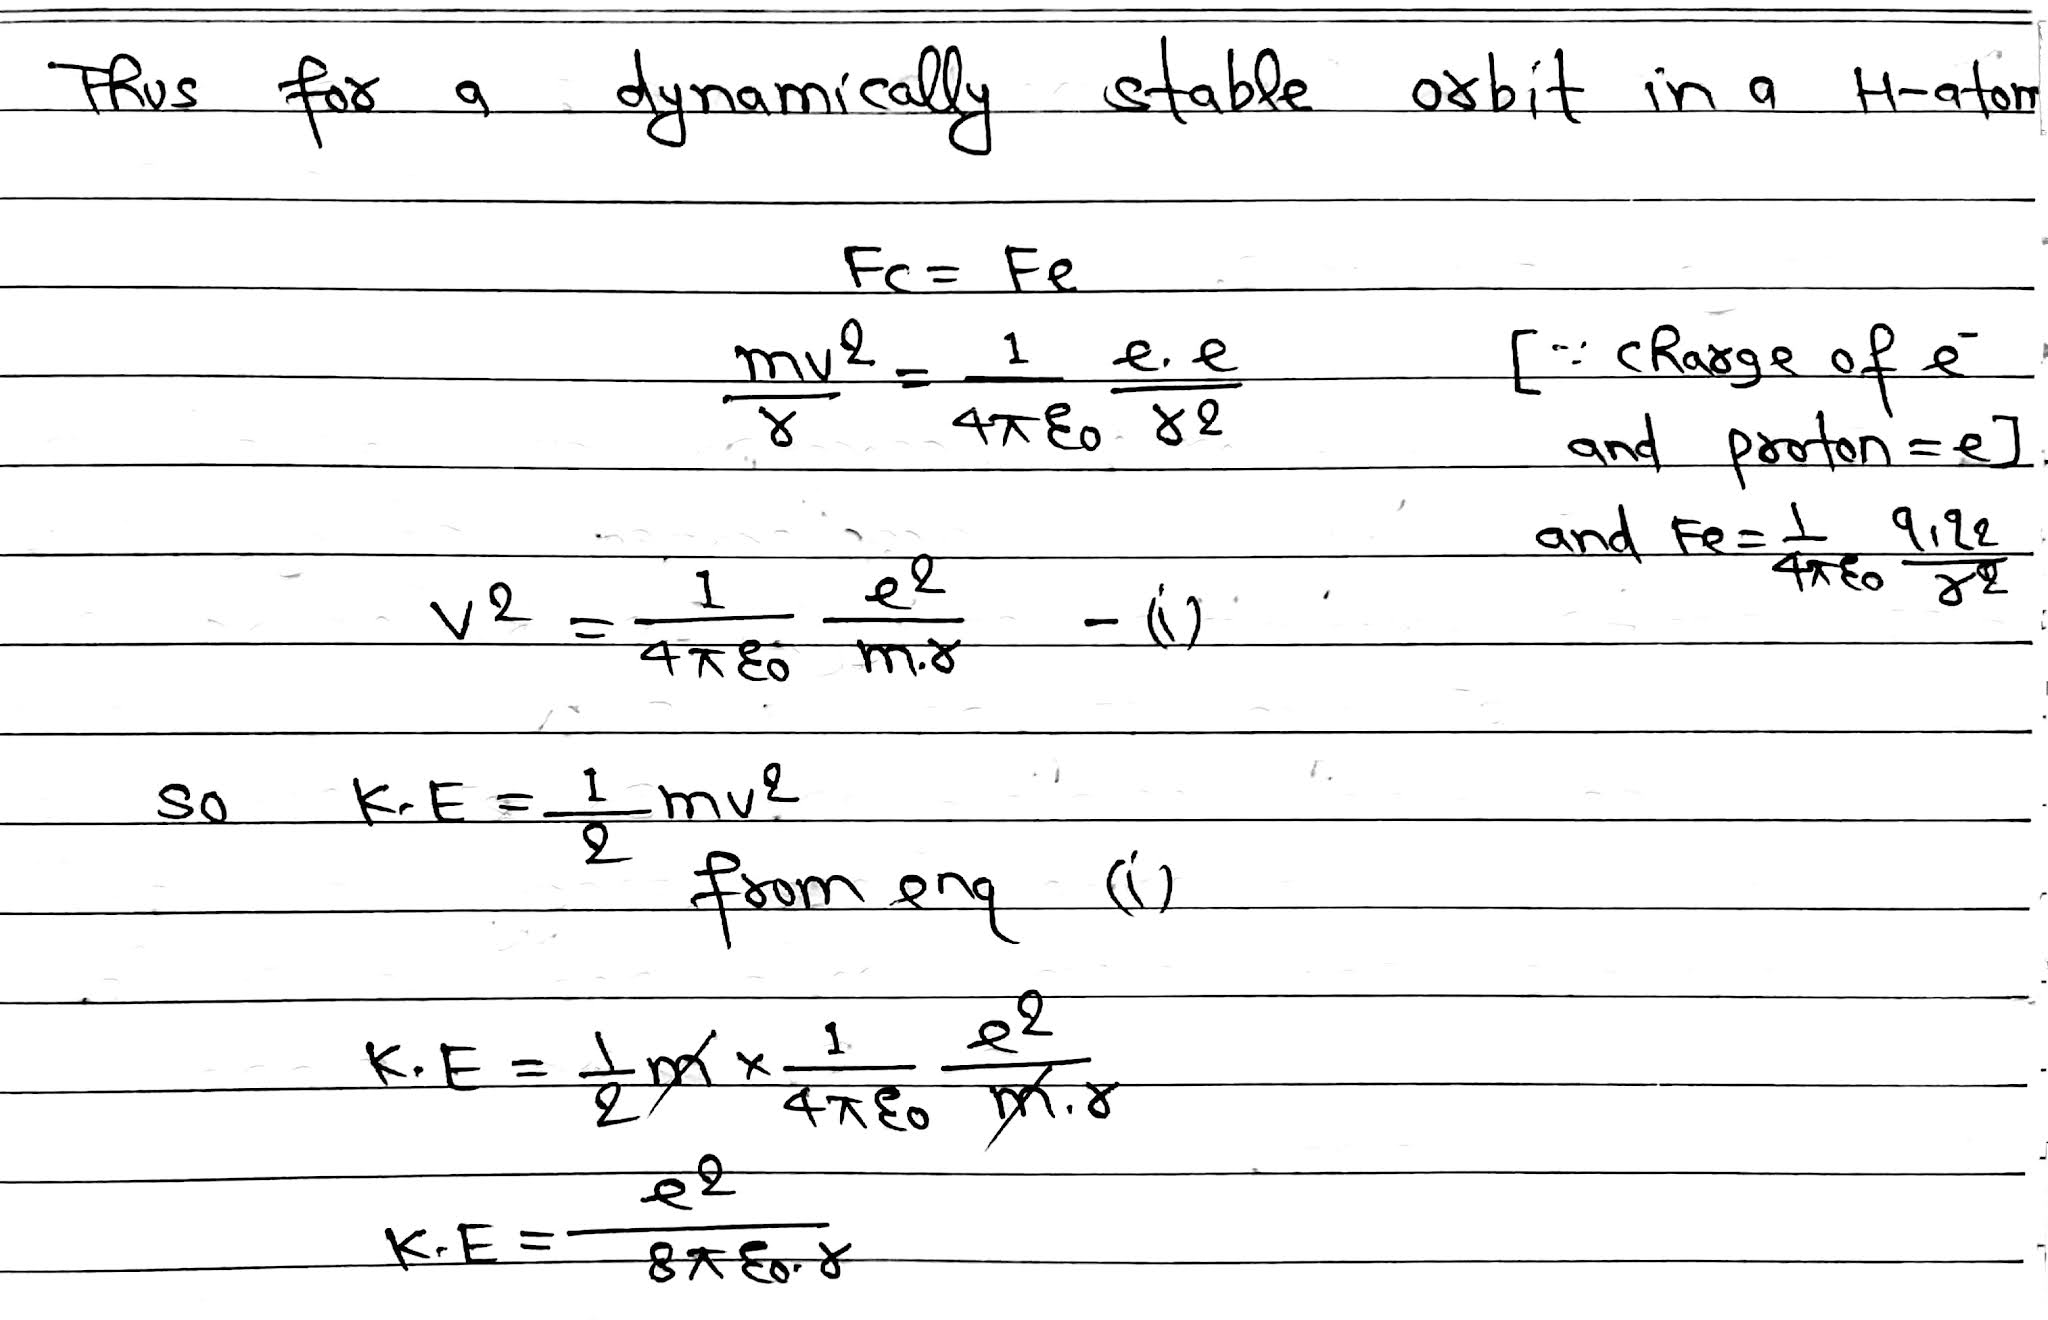 Thus for a dynamically stable orbit in a H-atom
Fc = Fe
mv²/r = 1/4πε₀ e.e/r² [∵ charge of e⁻
and proton = e]
and Fe = 1/4πε₀ q₁q₂/r²
v² = 1/4πε₀ e²/m.r - (i)
so K.E = 1/2 mv²
from enq (i)
K.E = 1/2 m × 1/4πε₀ e²/m.r
K.E = e²/8πε₀.r